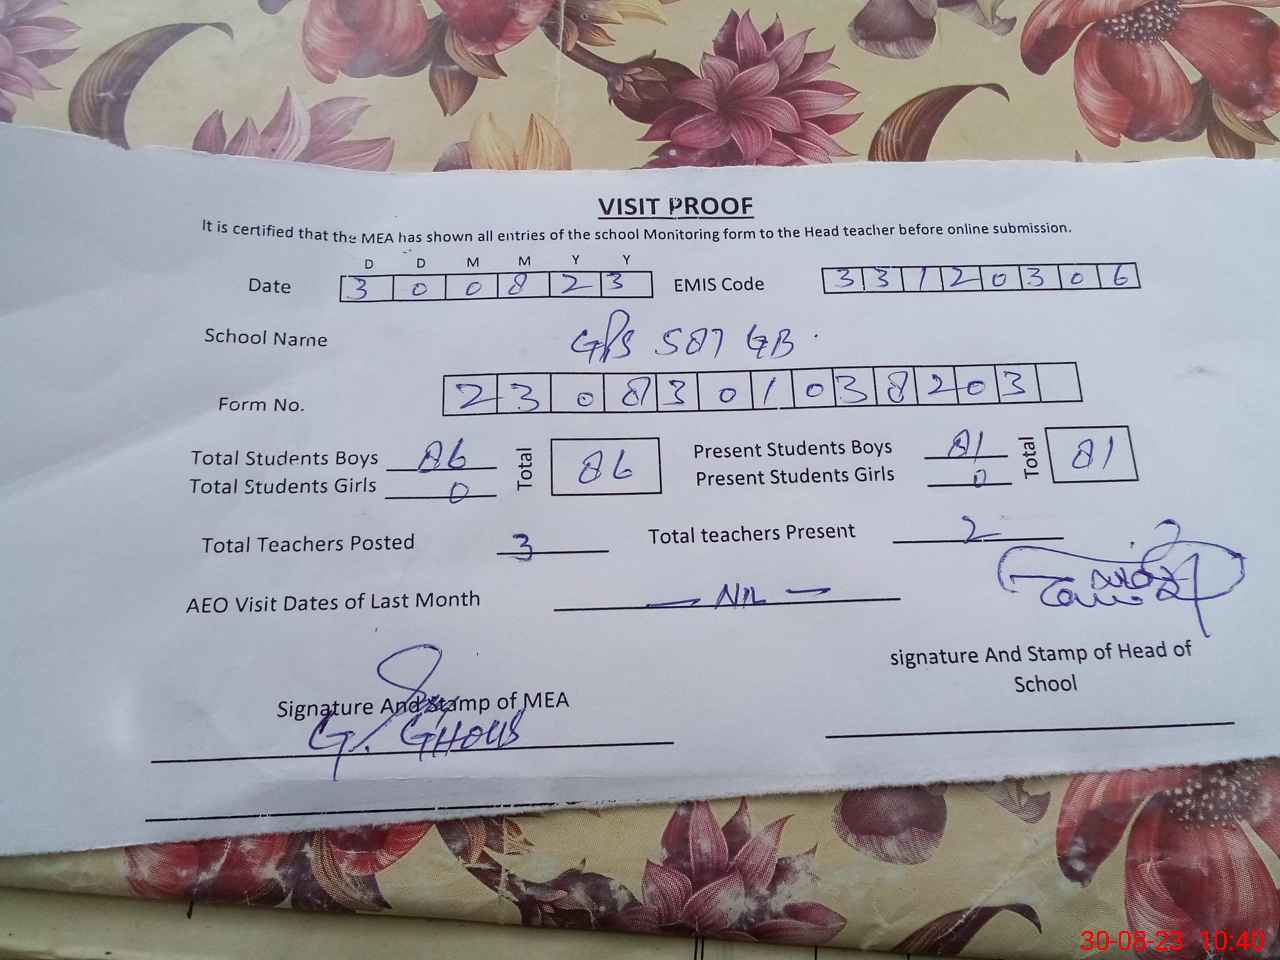 VISIT PROOF
It is certified that the MEA has shown all entries of the school Monitoring form to the Head teacher before online submission.
D D M M Y Y
Date 3 0 0 8 2 3 EMIS Code 3 3 1 2 0 3 0 6
School Name GPS 587 GB
Form No. 2 3 0 8 3 0 1 0 3 8 2 0 3
Total Students Boys 86 Total 86 Present Students Boys 81 Total 81
Total Students Girls 0 Present Students Girls 0
Total Teachers Posted 3 Total teachers Present 2
AEO Visit Dates of Last Month — NIL —
signature And Stamp of Head of
School
Signature And Stamp of MEA
G. GHOUS
30-08-23 10:40